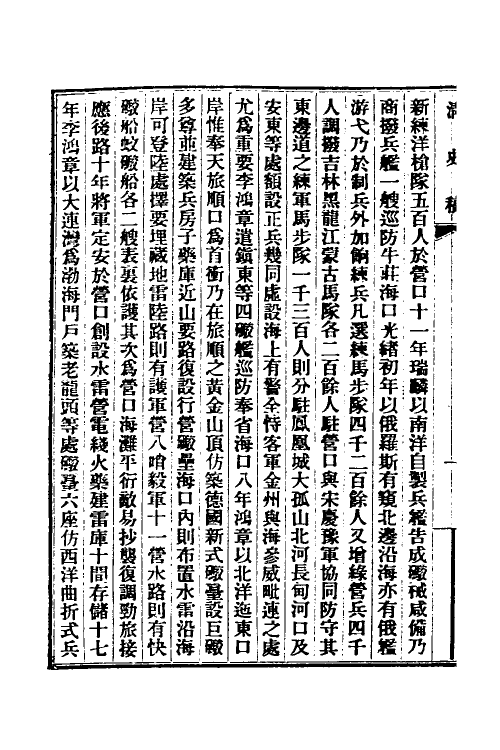 清史稿
新練洋槍隊五百人於營口十一年瑞麟以南洋自製兵艦告成礮械咸備乃
商撥兵艦一艘巡防牛莊海口光緒初年以俄羅斯有窺北邊沿海亦有俄艦
游弋乃於制兵外加餉練兵凡選練馬步隊四千二百餘人又增綠營兵四千
人調撥吉林黑龍江蒙古馬隊各二百餘人駐營口與宋慶豫軍協同防守其
東邊道之練軍馬步隊一千三百人則分駐鳳凰城大孤山北河長甸河口及
安東等處額設正兵幾同虛設海上有警全恃客軍金州與海參威毗連之處
尤爲重要李鴻章遣鎮東等四礮艦巡防奉省海口八年鴻章以北洋迤東口
岸惟奉天旅順口爲首衝乃在旅順之黃金山頂仿築德國新式礮臺設巨礮
多尊並建築兵房子藥庫近山要路復設行營礮壘海口內則布置水雷沿海
岸可登陸處擇要埋藏地雷陸路則有護軍營八哨毅軍十一營水路則有快
礮船蚊礮船各二艘表裏依護其次爲營口海灘平衍敵易抄襲復調勁旅接
應後路十年將軍定安於營口創設水雷營電綫火藥建雷庫十間存儲十七
年李鴻章以大連灣爲渤海門戶築老龍頭等處礮臺六座仿西洋曲折式兵